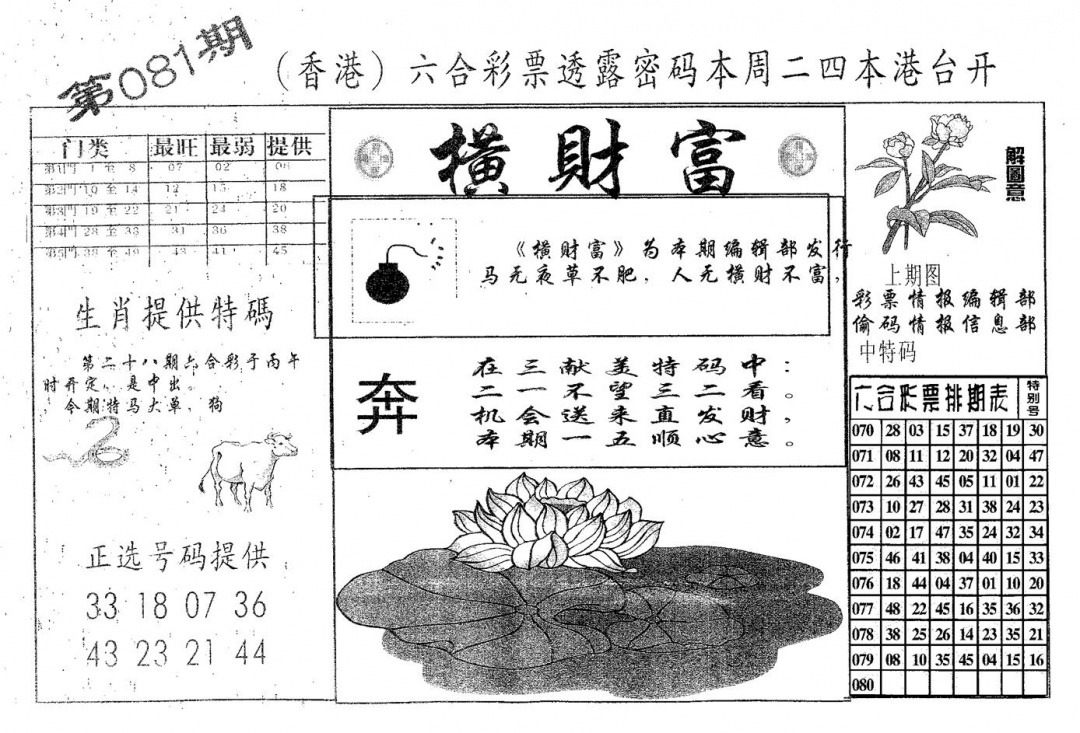 第081期
(香港)六合彩票透露密码本周二四本港台开
门类 最旺 最弱 提供
第1門 1 至 8 07 02 06
第2門 10 至 14 12 15 18
第3門 19 至 22 21 24 20
第4門 28 至 33 31 36 38
第5門 38 至 49 43 41 45
生肖提供特碼
第二十八期六合彩于丙午
时开定，是中出。
，今期特马大单，狗
正选号码提供
33 18 07 36
43 23 21 44
橫財富
《横财富》为本期编辑部发行
马无夜草不肥，人无横财不富，
奔
在三献美特码中：
二一不望三二看。
机会送来直发财，
本期一五顺心意。
解圖意
上期图
彩票情报编辑部
偷码情报信息部
中特码
六合彩票排期表 特别号
070 28 03 15 37 18 19 30
071 08 11 12 20 32 04 47
072 26 43 45 05 11 01 22
073 10 27 28 31 38 24 23
074 02 17 47 35 24 32 34
075 46 41 38 04 40 15 33
076 18 44 04 37 01 10 20
077 48 22 45 16 35 36 32
078 38 25 26 14 23 35 21
079 08 10 35 45 04 15 16
080